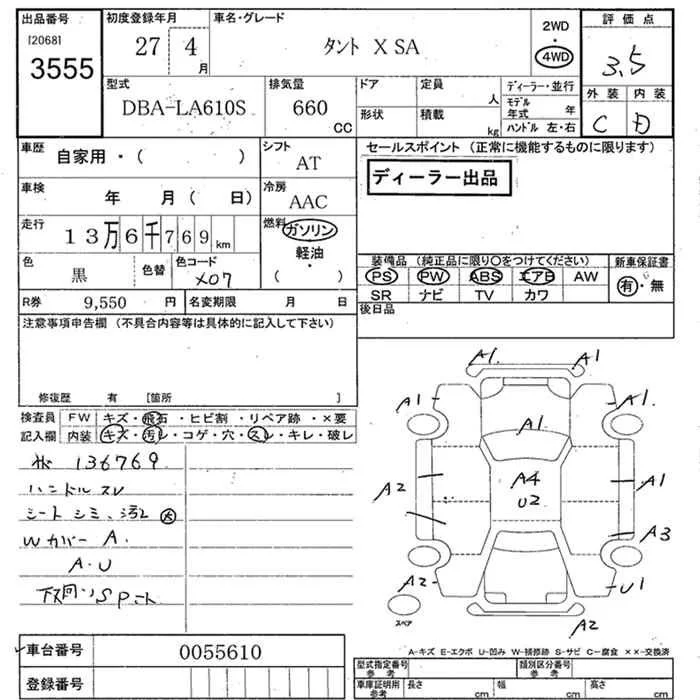 出品番号
[2068]
3555
初度登録年月
27 4 月
車名・グレード
タント X SA
2WD
・
4WD
評価点
3.5
外装 内装
C D
型式
DBA-LA610S
排気量
660 CC
ドア
形状
定員 人
積載 kg
ディーラー・並行
モデル年式 年
ハンドル 左・右
車歴
自家用・( )
シフト
AT
セールスポイント (正常に機能するものに限ります)
ディーラー出品
車検
年 月( 日)
冷房
AAC
走行
13万6千769km
燃料
ガソリン
軽油・
( )
色
黒
色替
色コード
X07
装備品 (純正品に限り〇をつけてください)
新車保証書
PS PW ABS エアB AW
有・無
SR ナビ TV カワ
R券 9,550 円
名変期限 月 日
後日品
注意事項申告欄 (不具合内容等は具体的に記入して下さい)
修復歴 有 [箇所 ]
検査員
記入欄
FW キズ・飛石・ヒビ割・リペア跡・×要
内装 キズ・汚レ・コゲ・穴・スレ・キレ・破レ
136769
ハンドルスレ
シートシミ、汚レ 大
Wカバー A.
A・U
下回りSPコート
A1. A1
A1 A1.
A1
A4
U2
A2 A1
A3
A2 U1
A2
スペア
A-キズ E-エクボ U-凹み W-補修跡 S-サビ C-腐食 ××-交換済
車台番号 0055610
登録番号
型式指定番号 参考
類別区分番号 参考
車庫証明用 参考
長さ cm
幅 cm
高さ cm